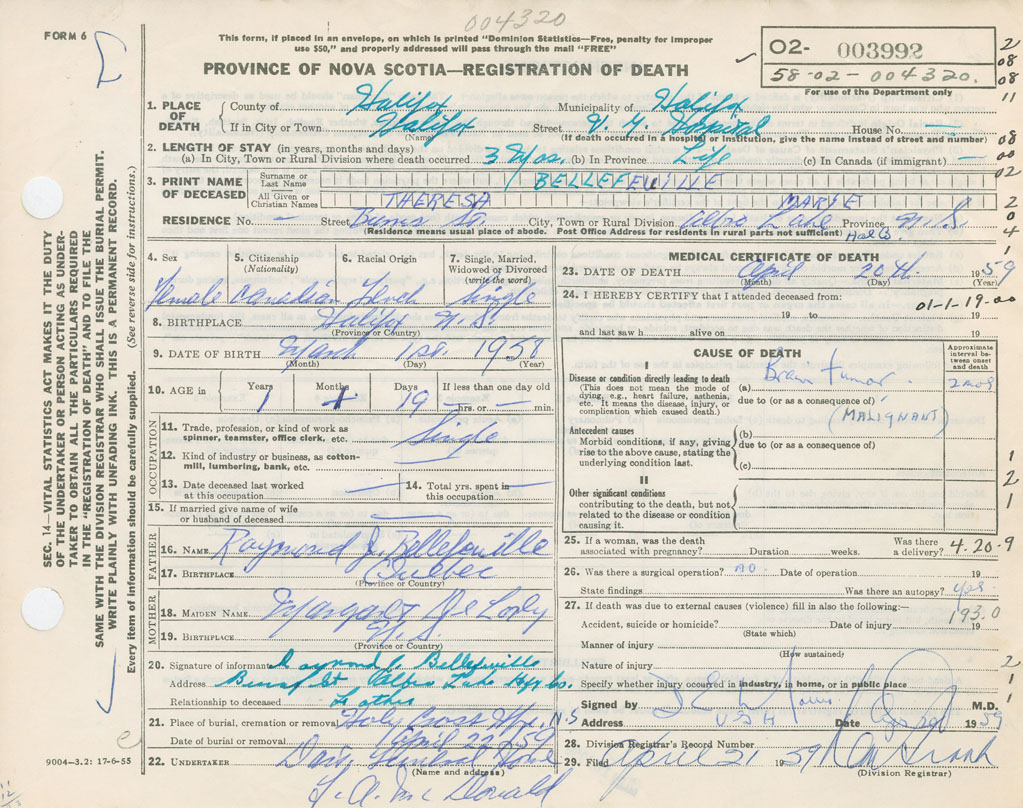 004320
FORM 6
This form, if placed in an envelope, on which is printed "Dominion Statistics—Free, penalty for improper
use $50," and properly addressed will pass through the mail "FREE"
PROVINCE OF NOVA SCOTIA—REGISTRATION OF DEATH
O2- 003992
58-02-004320.
For use of the Department only
2
08
08
11
08
00
02
2
0
4
1
1. PLACE OF DEATH County of Halifax Municipality of Halifax
If in City or Town Halifax Street V. G. Hospital House No. —
(Name) (If death occurred in a hospital or Institution, give the name instead of street and number)
2. LENGTH OF STAY (in years, months and days)
(a) In City, Town or Rural Division where death occurred 3 Mos. (b) In Province Life (c) In Canada (if immigrant) —
3. PRINT NAME OF DECEASED Surname or Last Name BELLEFEUILLE
All Given or Christian Names THERESA MARYE
RESIDENCE No. — Street Burns St. City, Town or Rural Division Albro Lake Province N.S.
(Residence means usual place of abode. Post Office Address for residents in rural parts not sufficient) Hal Co.
4. Sex 5. Citizenship (Nationality) 6. Racial Origin 7. Single, Married, Widowed or Divorced (write the word)
Female Canadian French Single
8. BIRTHPLACE Halifax N.S.
(Province or Country)
9. DATE OF BIRTH March 1st. 1958
(Month) (Day) (Year)
10. AGE in Years Months Days If less than one day old
1 1 19 hrs. or — min.
OCCUPATION
11. Trade, profession, or kind of work as spinner, teamster, office clerk, etc. Single
12. Kind of industry or business, as cotton-mill, lumbering, bank, etc. —
13. Date deceased last worked at this occupation — 14. Total yrs. spent in this occupation —
15. If married give name of wife or husband of deceased —
FATHER
16. NAME Raymond J. Bellefeuille
17. BIRTHPLACE Quebec
(Province or Country)
MOTHER
18. MAIDEN NAME Margaret De Lory
19. BIRTHPLACE N.S.
(Province or Country)
20. Signature of informant Raymond J. Bellefeuille
Address Burns St Albro Lake Hfx Co.
Relationship to deceased Father
21. Place of burial, cremation or removal Holy Cross Hfx. N.S
Date of burial or removal April 22/59
22. UNDERTAKER Dart. Funeral Home
(Name and address)
F. A. McDonald
MEDICAL CERTIFICATE OF DEATH
23. DATE OF DEATH April 20th 1959
(Month) (Day) (Year)
24. I HEREBY CERTIFY that I attended deceased from:
01-1-19-00
19 to 19
and last saw h alive on 19
CAUSE OF DEATH
Approximate interval between onset and death
I
Disease or condition directly leading to death
(This does not mean the mode of dying, e.g., heart failure, asthenia, etc. It means the disease, injury, or complication which caused death.)
(a) Brain Tumor.
due to (or as a consequence of)
(MALIGNANT)
2 mos
Antecedent causes
Morbid conditions, if any, giving rise to the above cause, stating the underlying condition last.
(b)
due to (or as a consequence of)
(c)
II
Other significant conditions
contributing to the death, but not related to the disease or condition causing it.
1
2
1
25. If a woman, was the death associated with pregnancy? Duration weeks. Was there a delivery? 4.20-9
26. Was there a surgical operation? no Date of operation 19
State findings Was there an autopsy? yes
27. If death was due to external causes (violence) fill in also the following:— 193.0
Accident, suicide or homicide? Date of injury 19
(State which)
Manner of injury
(How sustained)
Nature of injury
Specify whether injury occured in industry, in home, or in public place
2
1
1
Signed by M.D.
Address VGH Date 1959
28. Division Registrar's Record Number
29. Filed April 21 59
(Division Registrar)
SEC. 14—VITAL STATISTICS ACT MAKES IT THE DUTY
OF THE UNDERTAKER OR PERSON ACTING AS UNDER-
TAKER TO OBTAIN ALL THE PARTICULARS REQUIRED
IN THE "REGISTRATION OF DEATH" AND TO FILE THE
SAME WITH THE DIVISION REGISTRAR WHO SHALL ISSUE THE BURIAL PERMIT.
WRITE PLAINLY WITH UNFADING INK. THIS IS A PERMANENT RECORD.
Every item of information should be carefully supplied. (See reverse side for instructions.)
9004-3.2: 17-6-55
e
11
12